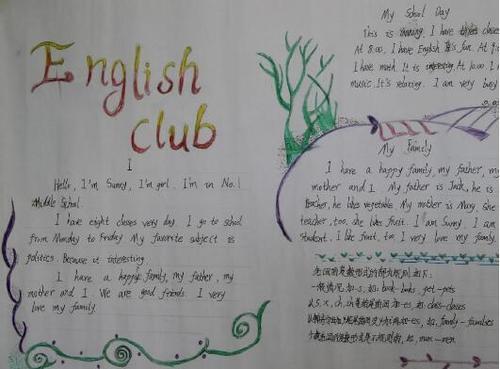 English
Club
I
Hello, I'm Sunny, I'm girl. I'm in No.1
Middle School.
I have eight classes very day. I go to school
from Monday to Friday My favorite subject is
politics. Because it interesting.
I have a happy family, my father, my
mother and I. We are good friends. I very
love my family.
My School Day
This is I have classes
At 8:00. I have English It's fun. At 9
I have math. It is interesting. At 10:00. I
music. It's relaxing. I am very busy
My Family
I have a happy family, my father, my
mother and I. My father is Jack, he is
teacher, he likes vegetable My mother is Mary, She
teacher, too. she likes fruit. I am Sunny. I am
student. I like fruit, too I very love my family.
名词的复数形式的部分规则如下:
一般情况加-s, 如: book-books, get-pets
以s, x, ch, sh 加-es, 如: class-classes
变y为i再加-es, 如, family-families
少数名词的复数形式是不规则的, 如, man-men